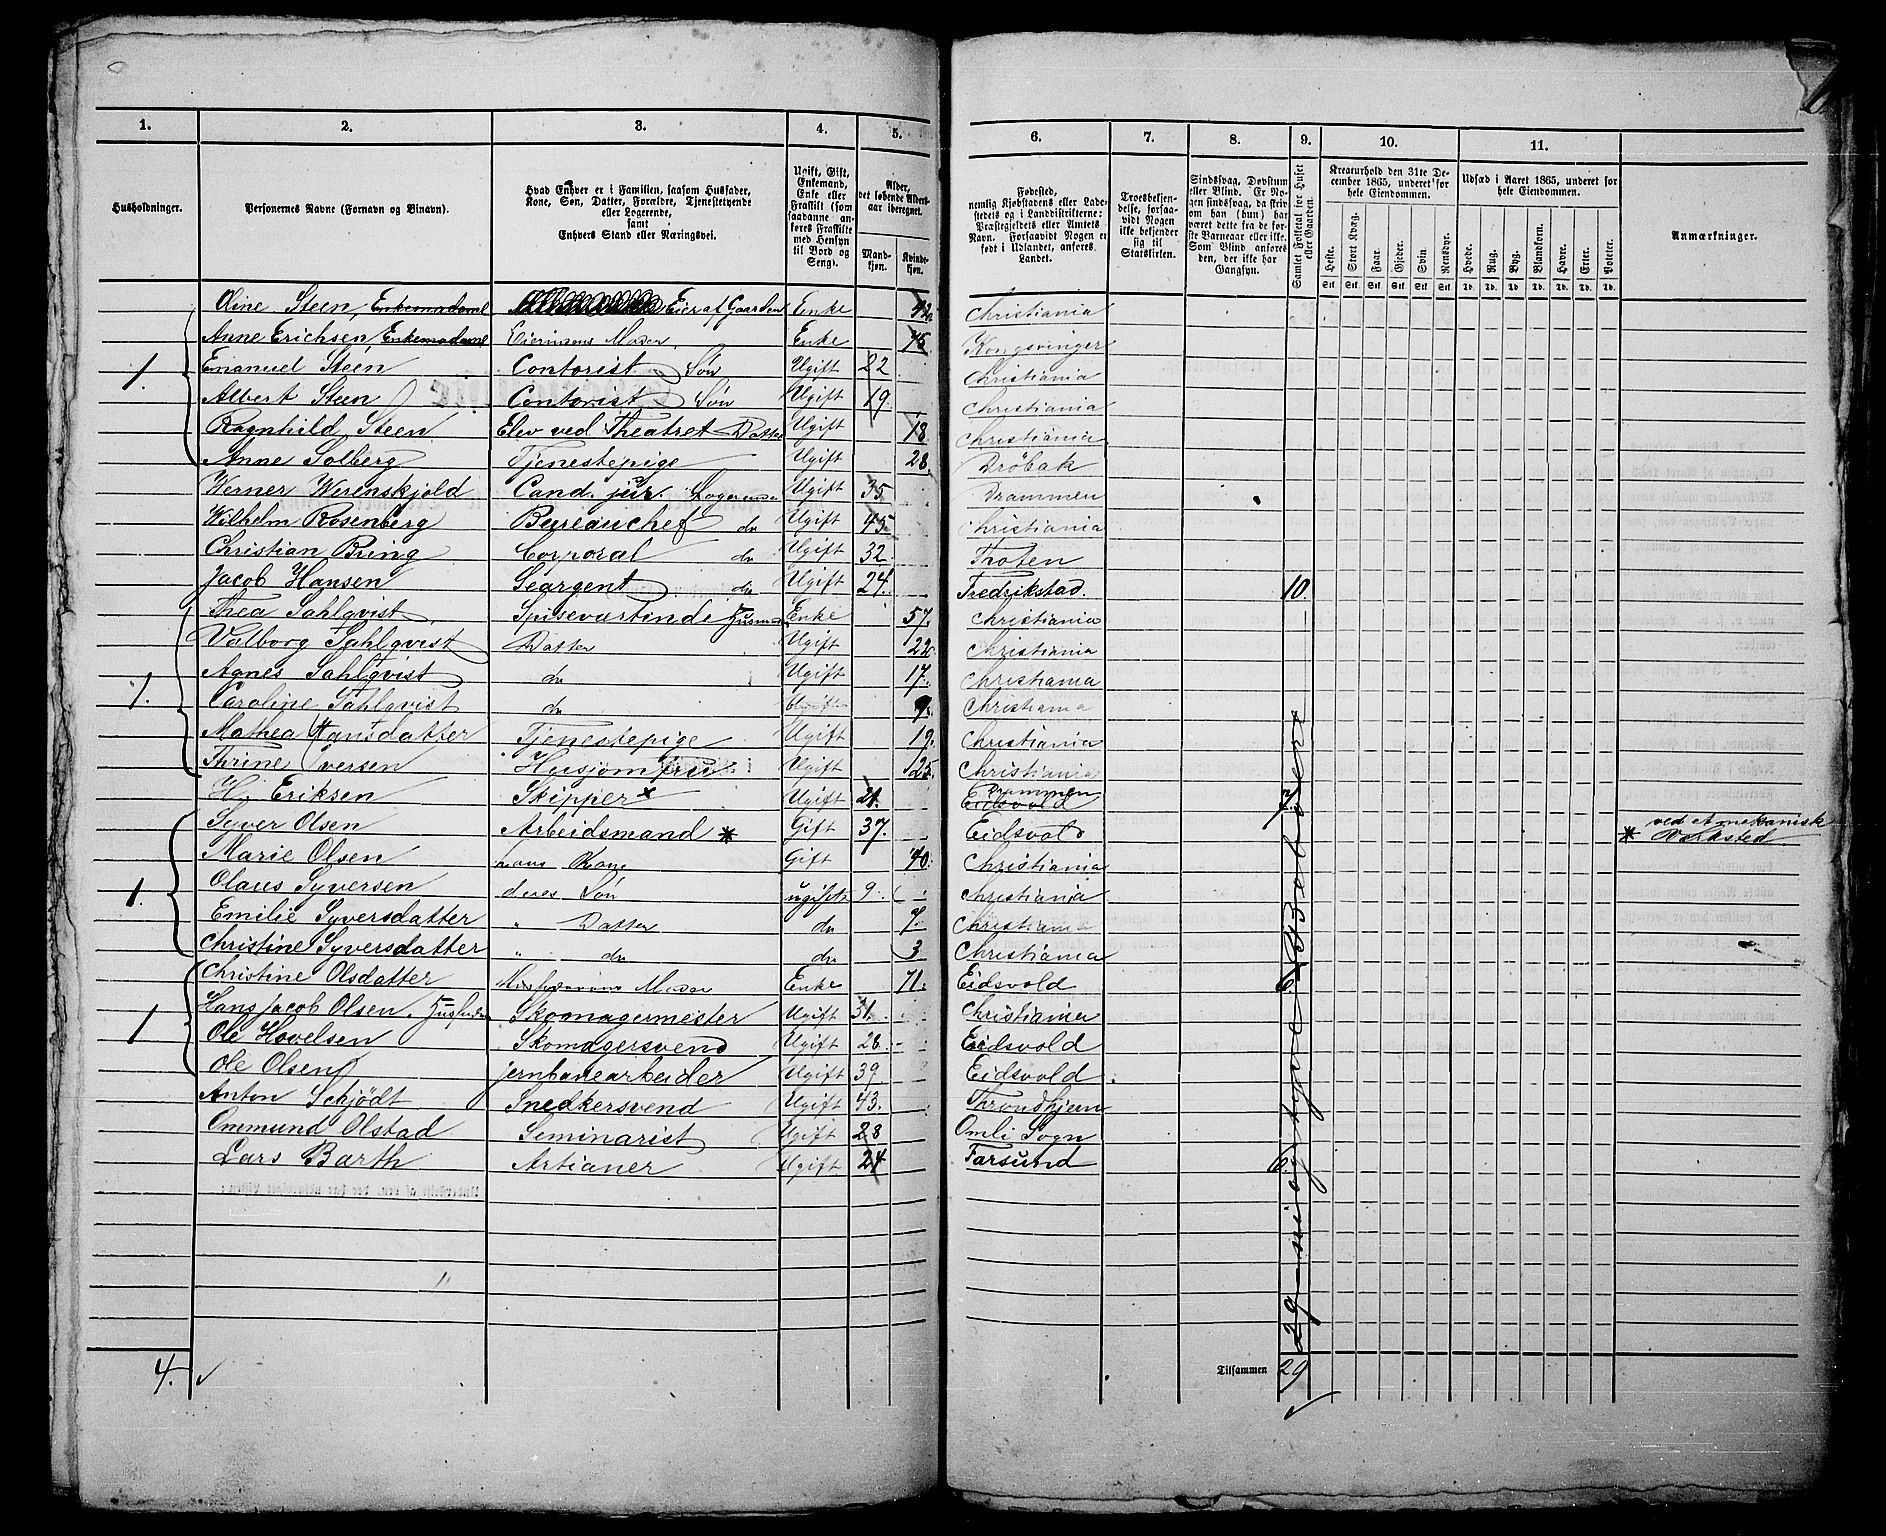 1. 2. 3. 4. 5. 6. 7. 8. 9. 10. 11.
Husholdninger.
Personernes Navne (Fornavn og Binavn).
Hvad Enhver er i Familien, saasom Husfader, Kone, Søn, Datter, Forældre, Tjenestetyende eller Logerende, samt Enhvers Stand eller Næringsvei.
Ugift, Gift, Enkemand, Enke eller Fraskilt (som saadanne anføres Fraskilte med Hensyn til Bord og Seng).
Alder, det løbende Alders-aar iberegnet.
Mand-kjøn. Kvinde-kjøn.
Fødested, nemlig Kjøbstadens eller Ladestedets og i Landdistrikterne: Præstegjeldets eller Amtets Navn. Forsaavidt Nogen er født i Udlandet, anføres Landet.
Troesbekjendelse, forsaavidt Nogen ikke bekjender sig til Statskirken.
Sindssvag, Døvstum eller Blind. Er Nogen sindssvag, da skrives om han (hun) har været dette fra de første Barneaar eller ikke. Som Blind anføres den, der ikke har Gangsyn.
Samlet Folketal for Huset eller Gaarden.
Kreaturhold den 31te December 1865, underet for hele Eiendommen.
Heste. Stort Kvæg. Faar. Gjeder. Svin. Rensdyr.
Stk. Stk. Stk. Stk. Stk. Stk.
Udsæd i Aaret 1865, underet for hele Eiendommen.
Hvede. Rug. Byg. Blandkorn. Havre. Erter. Poteter.
Td. Td. Td. Td. Td. Td. Td.
Anmærkninger.
Oline Steen, Enkemadame Eier af Gaarden Enke 42 Christiania
Anne Erichsen, Enkemadame Eierindens Moder Enke 75 Kongsvinger
1. Emanuel Steen Contorist Søn Ugift 22 Christiania
Albert Steen Contorist Søn Ugift 19. Christiania
Ragnhild Steen Elev ved Theatret Datter Ugift 18. Christiania
Anne Solberg Tjenestepige Ugift 28. Drøbak
Werner Werenskjold Cand. jur. Logerende Ugift 35 Drammen
Wilhelm Rosenberg Bureauchef do Ugift 45 Christiania
Christian Bring Corporal do Ugift 32 Thoten
Jacob Hansen Seargent do Ugift 24. Fredrikstad. 10.
Thea Sahlqvist Spiseværtinde Husmoder Enke 57. Christiania
Valborg Sahlqvist Datter Ugift 22 Christiania
Agnes Sahlqvist do Ugift 17. Christiania
1. Caroline Sahlqvist do Ugift 9. Christiania
Mathea Hansdatter Tjenestepige Ugift 19. Christiania
Thrine Iversen Husjomfru Ugift 25. Christiania
H. Eriksen Skipper x Ugift 21. Drammen Eidsvold 7.
Syver Olsen Arbeidsmand * Gift 37. Eidsvold * ved et mekanisk Værksted.
Marie Olsen hans Kone Gift 40. Christiania
1. Olaus Syversen deres Søn ugift 9. Christiania
Emilie Syversdatter " Datter do 7. Christiania
Christine Syversdatter " do do 3 Christiania
Christine Olsdatter Moder Enke 71. Eidsvold 6.
Hans Jacob Olsen. Husfader Skomagermester Ugift 31. Christiania
1 Ole Hovelsen Skomagersvend Ugift 28. Eidsvold
Ole Olsen jernbanearbeider Ugift 39 Eidsvold
Anton Schjödt Snedkersvend Ugift 43. Throndhjem
Ommund Olstad Seminarist Ugift 28 Omli Sogn
Lars Barth Artianer Ugift 24 Farsund 6.
29 - ni og tyve Beboere
4. Tilsammen 29